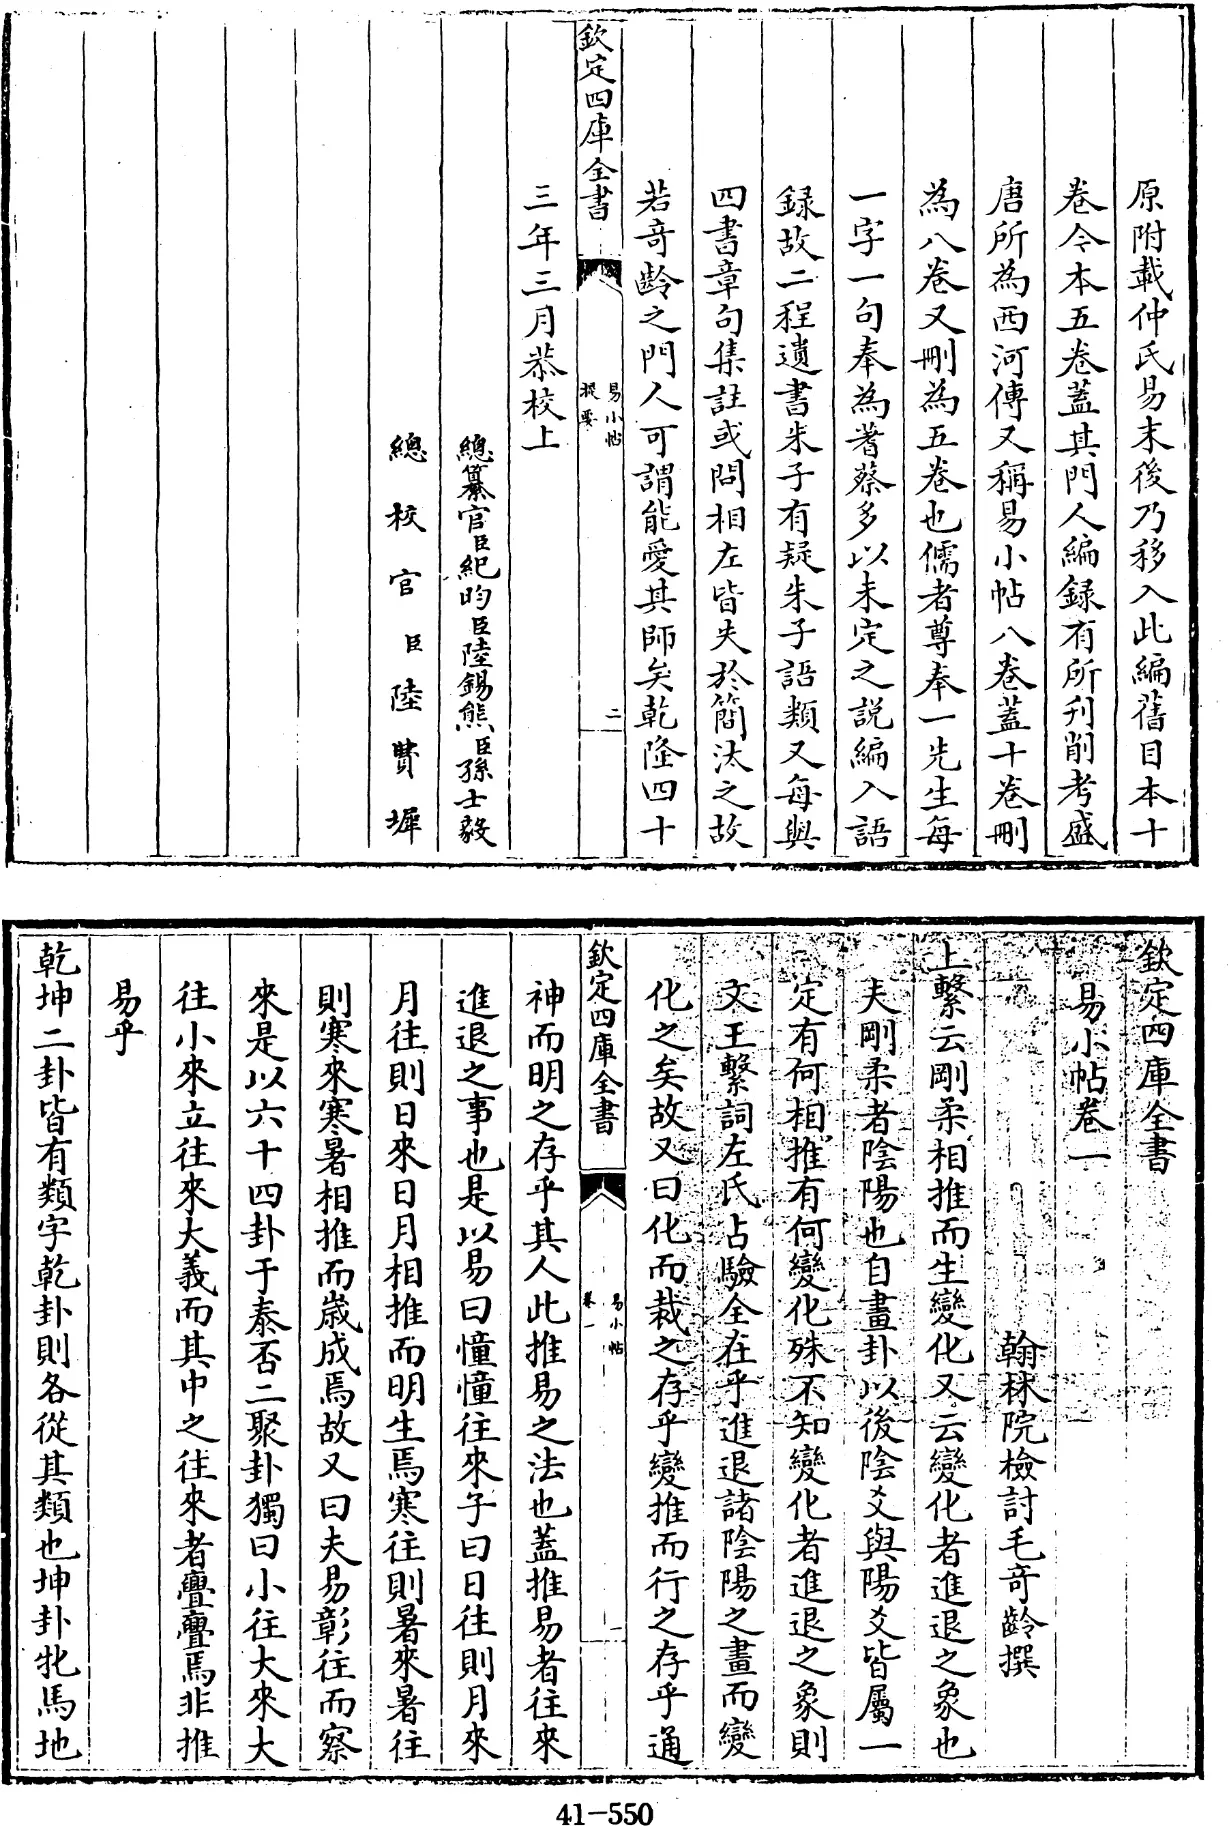 原附載仲氏易末後乃移入此編舊目本十
卷今本五卷蓋其門人編録有所刋削考盛
唐所為西河傳又稱易小帖八卷蓋十卷刪
為八卷又刪為五卷也儒者尊奉一先生每
一字一句奉為蓍蔡多以未定之説編入語
録故二程遺書朱子有疑朱子語類又每與
四書章句集註或問相左皆失於簡汰之故
若奇齡之門人可謂能愛其師矣乾隆四十
欽定四庫全書
易小帖
提要
二
三年三月恭校上
總纂官臣紀昀臣陸錫熊臣孫士毅
總校官臣陸費墀
欽定四庫全書
易小帖卷一
翰林院檢討毛奇齡撰
上繫云剛柔相推而生變化又云變化者進退之象也
夫剛柔者陰陽也自畫卦以後陰爻與陽爻皆屬一
定有何相推有何變化殊不知變化者進退之象則
文王繫詞左氏占驗全在乎進退諸陰陽之畫而變
化之矣故又曰化而裁之存乎變推而行之存乎通
欽定四庫全書
易小帖
卷一
一
神而明之存乎其人此推易之法也蓋推易者往來
進退之事也是以易曰憧憧往來子曰日往則月來
月往則日來日月相推而明生焉寒往則暑來暑往
則寒來寒暑相推而歲成焉故又曰夫易彰往而察
來是以六十四卦于泰否二聚卦獨曰小往大來大
往小來立往來大義而其中之往來者亹亹焉非推
易乎
乾坤二卦皆有類字乾卦則各從其類也坤卦牝馬地
41-550